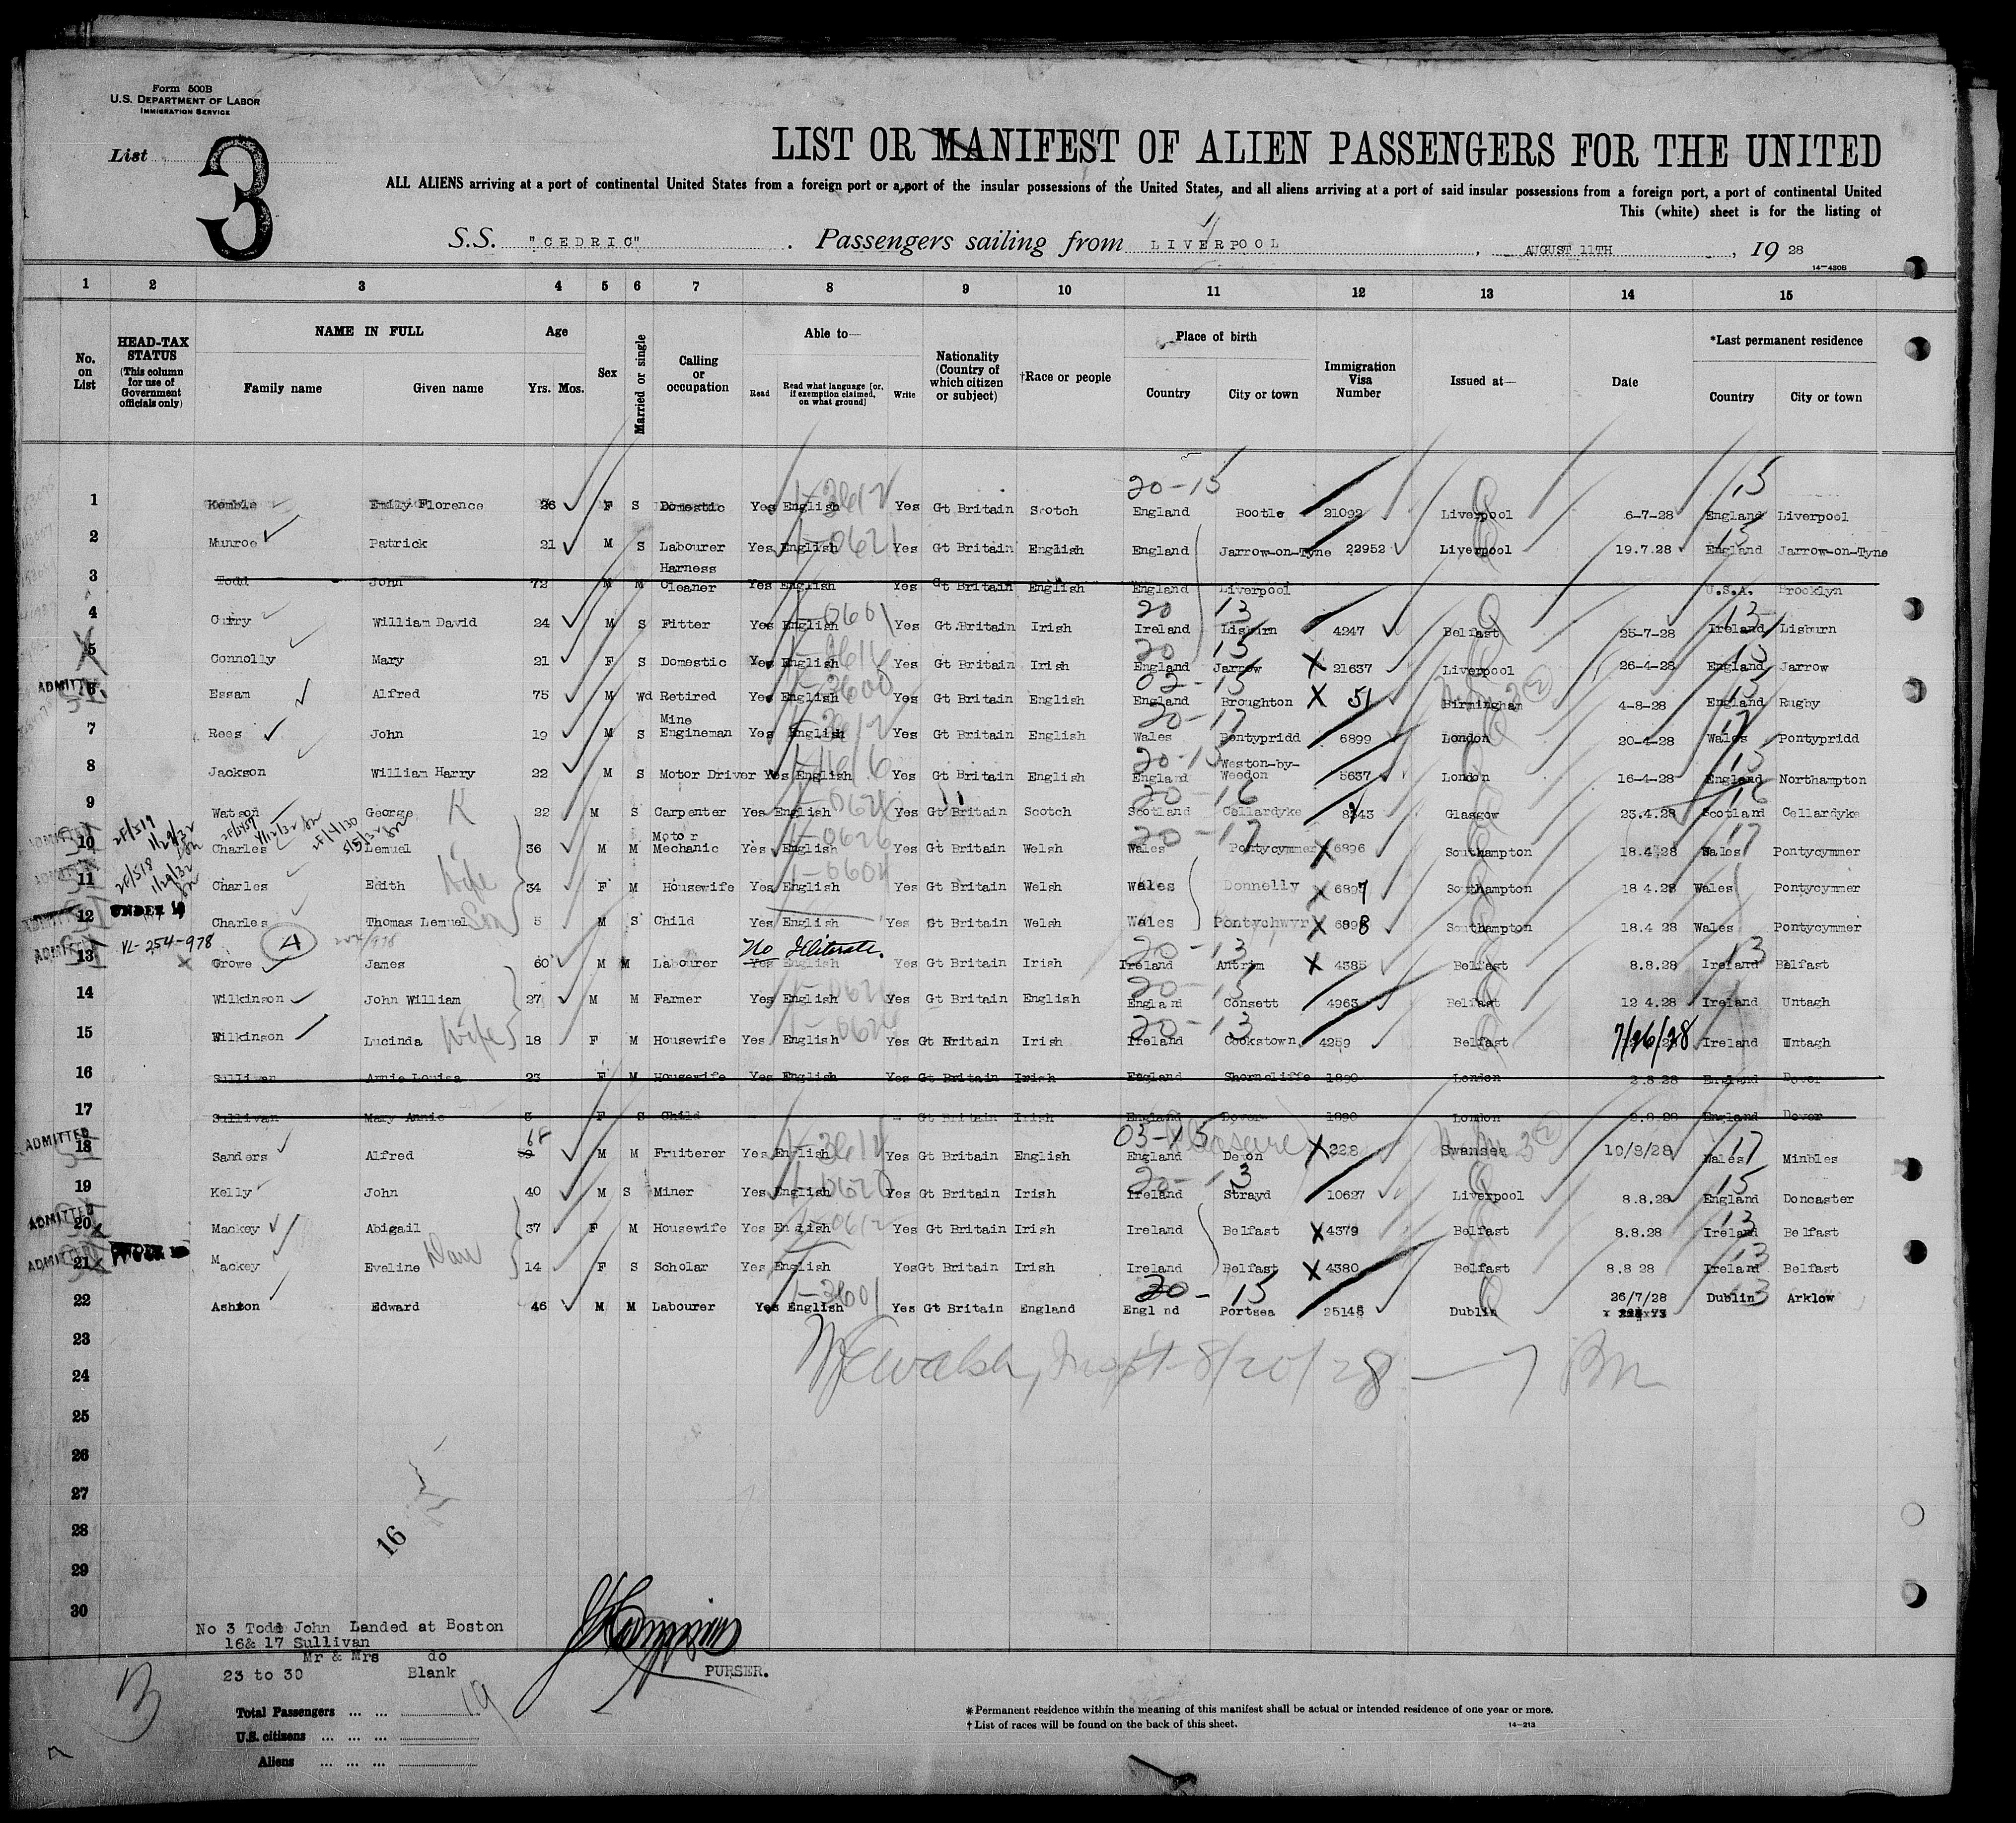 Form 500B
U.S. DEPARTMENT OF LABOR
IMMIGRATION SERVICE
List 3
LIST OR MANIFEST OF ALIEN PASSENGERS FOR THE UNITED
ALL ALIENS arriving at a port of continental United States from a foreign port or a port of the insular possessions of the United States, and all aliens arriving at a port of said insular possessions from a foreign port, a port of continental United
This (white) sheet is for the listing of
S.S. "CEDRIC" . Passengers sailing from LIVERPOOL , AUGUST 11TH , 19 28
14—430B
1 2 3 4 5 6 7 8 9 10 11 12 13 14 15
No. on List
HEAD-TAX STATUS (This column for use of Government officials only)
NAME IN FULL Family name Given name
Age Yrs. Mos.
Sex
Married or single
Calling or occupation
Able to— Read Read what language [or, if exemption claimed, on what ground] Write
Nationality (Country of which citizen or subject)
†Race or people
Place of birth Country City or town
Immigration Visa Number
Issued at—
Date
*Last permanent residence Country City or town
20-15 15
1 Kemble Emily Florence 26 F S Domestic Yes English Yes Gt Britain Scotch England Bootle 21092 Liverpool 6-7-28 England Liverpool
2 Munroe Patrick 21 M S Labourer Yes English Yes Gt Britain English England Jarrow-on-Tyne 22952 Liverpool 19.7.28 England Jarrow-on-Tyne
3 Todd John 72 M M Harness Cleaner Yes English Yes Gt Britain English England Liverpool U.S.A. Brooklyn
4 Curry William David 24 M S Fitter Yes English Yes Gt.Britain Irish Ireland Lisburn 4247 Belfast 25-7-28 Ireland Lisburn
5 Connolly Mary 21 F S Domestic Yes English Yes Gt Britain Irish England Jarrow X 21637 Liverpool 26-4-28 England Jarrow
ADMITTED 6 Essam Alfred 75 M Wd Retired Yes English Yes Gt Britain English England Broughton X 51 Birmingham 4-8-28 England Rugby
7 Rees John 19 M S Mine Engineman Yes English Yes Gt Britain English Wales Pontypridd 6899 London 20-4-28 Wales Pontypridd
8 Jackson William Harry 22 M S Motor Driver Yes English Yes Gt Britain English England Weston-by-Weedon 5637 London 16-4-28 England Northampton
9 Watson George K 22 M S Carpenter Yes English Yes Gt Britain Scotch Scotland Cellardyke Glasgow 23.4.28 Scotland Cellardyke
ADMITTED 10 Charles Lemuel 36 M M Motor Mechanic Yes English Yes Gt Britain Welsh Wales Pontycymmer X 6896 Southampton 18.4.28 Wales Pontycymmer
ADMITTED 11 Charles Edith Wife 34 F M Housewife Yes English Yes Gt Britain Welsh Wales Donnelly X 6897 Southampton 18 4.28 Wales Pontycymmer
ADMITTED 12 UNDER Charles Thomas Lemuel Son 5 M S Child Yes English Yes Gt Britain Welsh Wales Pontychwyr X 6898 Southampton 18.4 28 Wales Pontycymmer
VL-254-978 A No Illiterate.
ADMITTED 13 X Crowe James 60 M M Labourer Yes English Yes Gt Britain Irish Ireland Antrim X 4385 Belfast 8.8.28 Ireland Belfast
14 Wilkinson John William 27 M M Farmer Yes English Yes Gt Britain English England Consett 4963 Belfast 12 4.28 Ireland Untagh
15 Wilkinson Lucinda Wife 18 F M Housewife Yes English Yes Gt Britain Irish Ireland Cookstown 4259 Belfast 7/26/28 Ireland Untagh
16 Sullivan Annie Louisa 23 F M Housewife Yes English Yes Gt Britain Irish England Shorncliffe 1890 London 2.8.28 England Dover
17 Sullivan Mary Annie 3 F S Child - Gt Britain Irish England Dover 1890 London 2.8.28 England Dover
ADMITTED 18 Sanders Alfred 68 M M Fruiterer Yes English Yes Gt Britain English England Devon X 328 Swansea 10/8/28 Wales Minbles
19 Kelly John 40 M S Miner Yes English Yes Gt Britain Irish Ireland Strayd 10627 Liverpool 8.8.28 England Doncaster
ADMITTED 20 Mackey Abigail 37 F M Housewife Yes English Yes Gt Britain Irish Ireland Belfast X 4379 Belfast 8.8.28 Ireland Belfast
ADMITTED 21 Mackey Eveline Dau 14 F S Scholar Yes English Yes Gt Britain Irish Ireland Belfast X 4380 Belfast 8.8 28 Ireland Belfast
22 Ashton Edward 46 M M Labourer Yes English Yes Gt Britain England Engl nd Portsea 25148 Dublin 26/7/28 Dublin Arklow
23
Walsh, Inspt 8/20/28
24
25
26
27
28
29
30
16
No 3 Todd John Landed at Boston
16& 17 Sullivan
Mr & Mrs do
23 to 30 Blank
PURSER.
Total Passengers ... ... 19
U.S. citizens ... ... ...
Aliens ... ... ...
*Permanent residence within the meaning of this manifest shall be actual or intended residence of one year or more.
†List of races will be found on the back of this sheet. 14—213